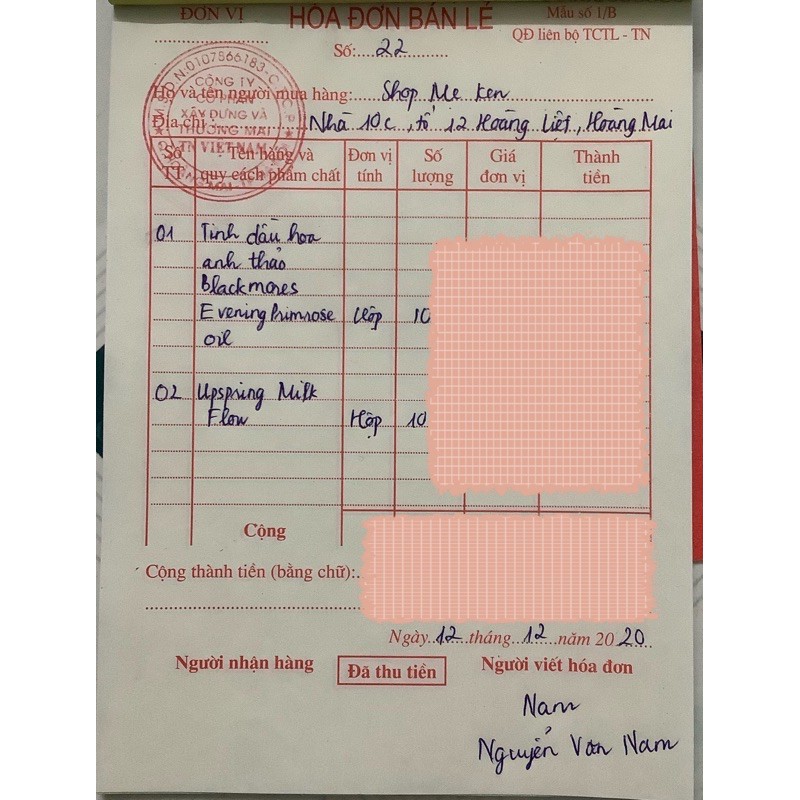 ĐƠN VỊ
HÓA ĐƠN BÁN LẺ
Mẫu số 1/B
QĐ liên bộ TCTL - TN
Số: 22
M.S.D.N:0107566183-C.T.C.P
CÔNG TY
CỔ PHẦN
XÂY DỰNG VÀ
THƯƠNG MẠI
TN VIỆT NAM
Họ và tên người mua hàng: Shop Me Ken
Địa chỉ : Nhà 10c, tổ 12 Hoàng Liệt, Hoàng Mai
Số TT
Tên hàng và quy cách phẩm chất
Đơn vị tính
Số lượng
Giá đơn vị
Thành tiền
01 Tinh dầu hoa
anh thảo
Blackmores
Evening Primrose Hộp 10
oil
02 Upspring Milk
Flow Hộp 10
Cộng
Cộng thành tiền (bằng chữ):
Ngày 12 tháng 12 năm 2020
Người nhận hàng
Đã thu tiền
Người viết hóa đơn
Nam
Nguyễn Văn Nam